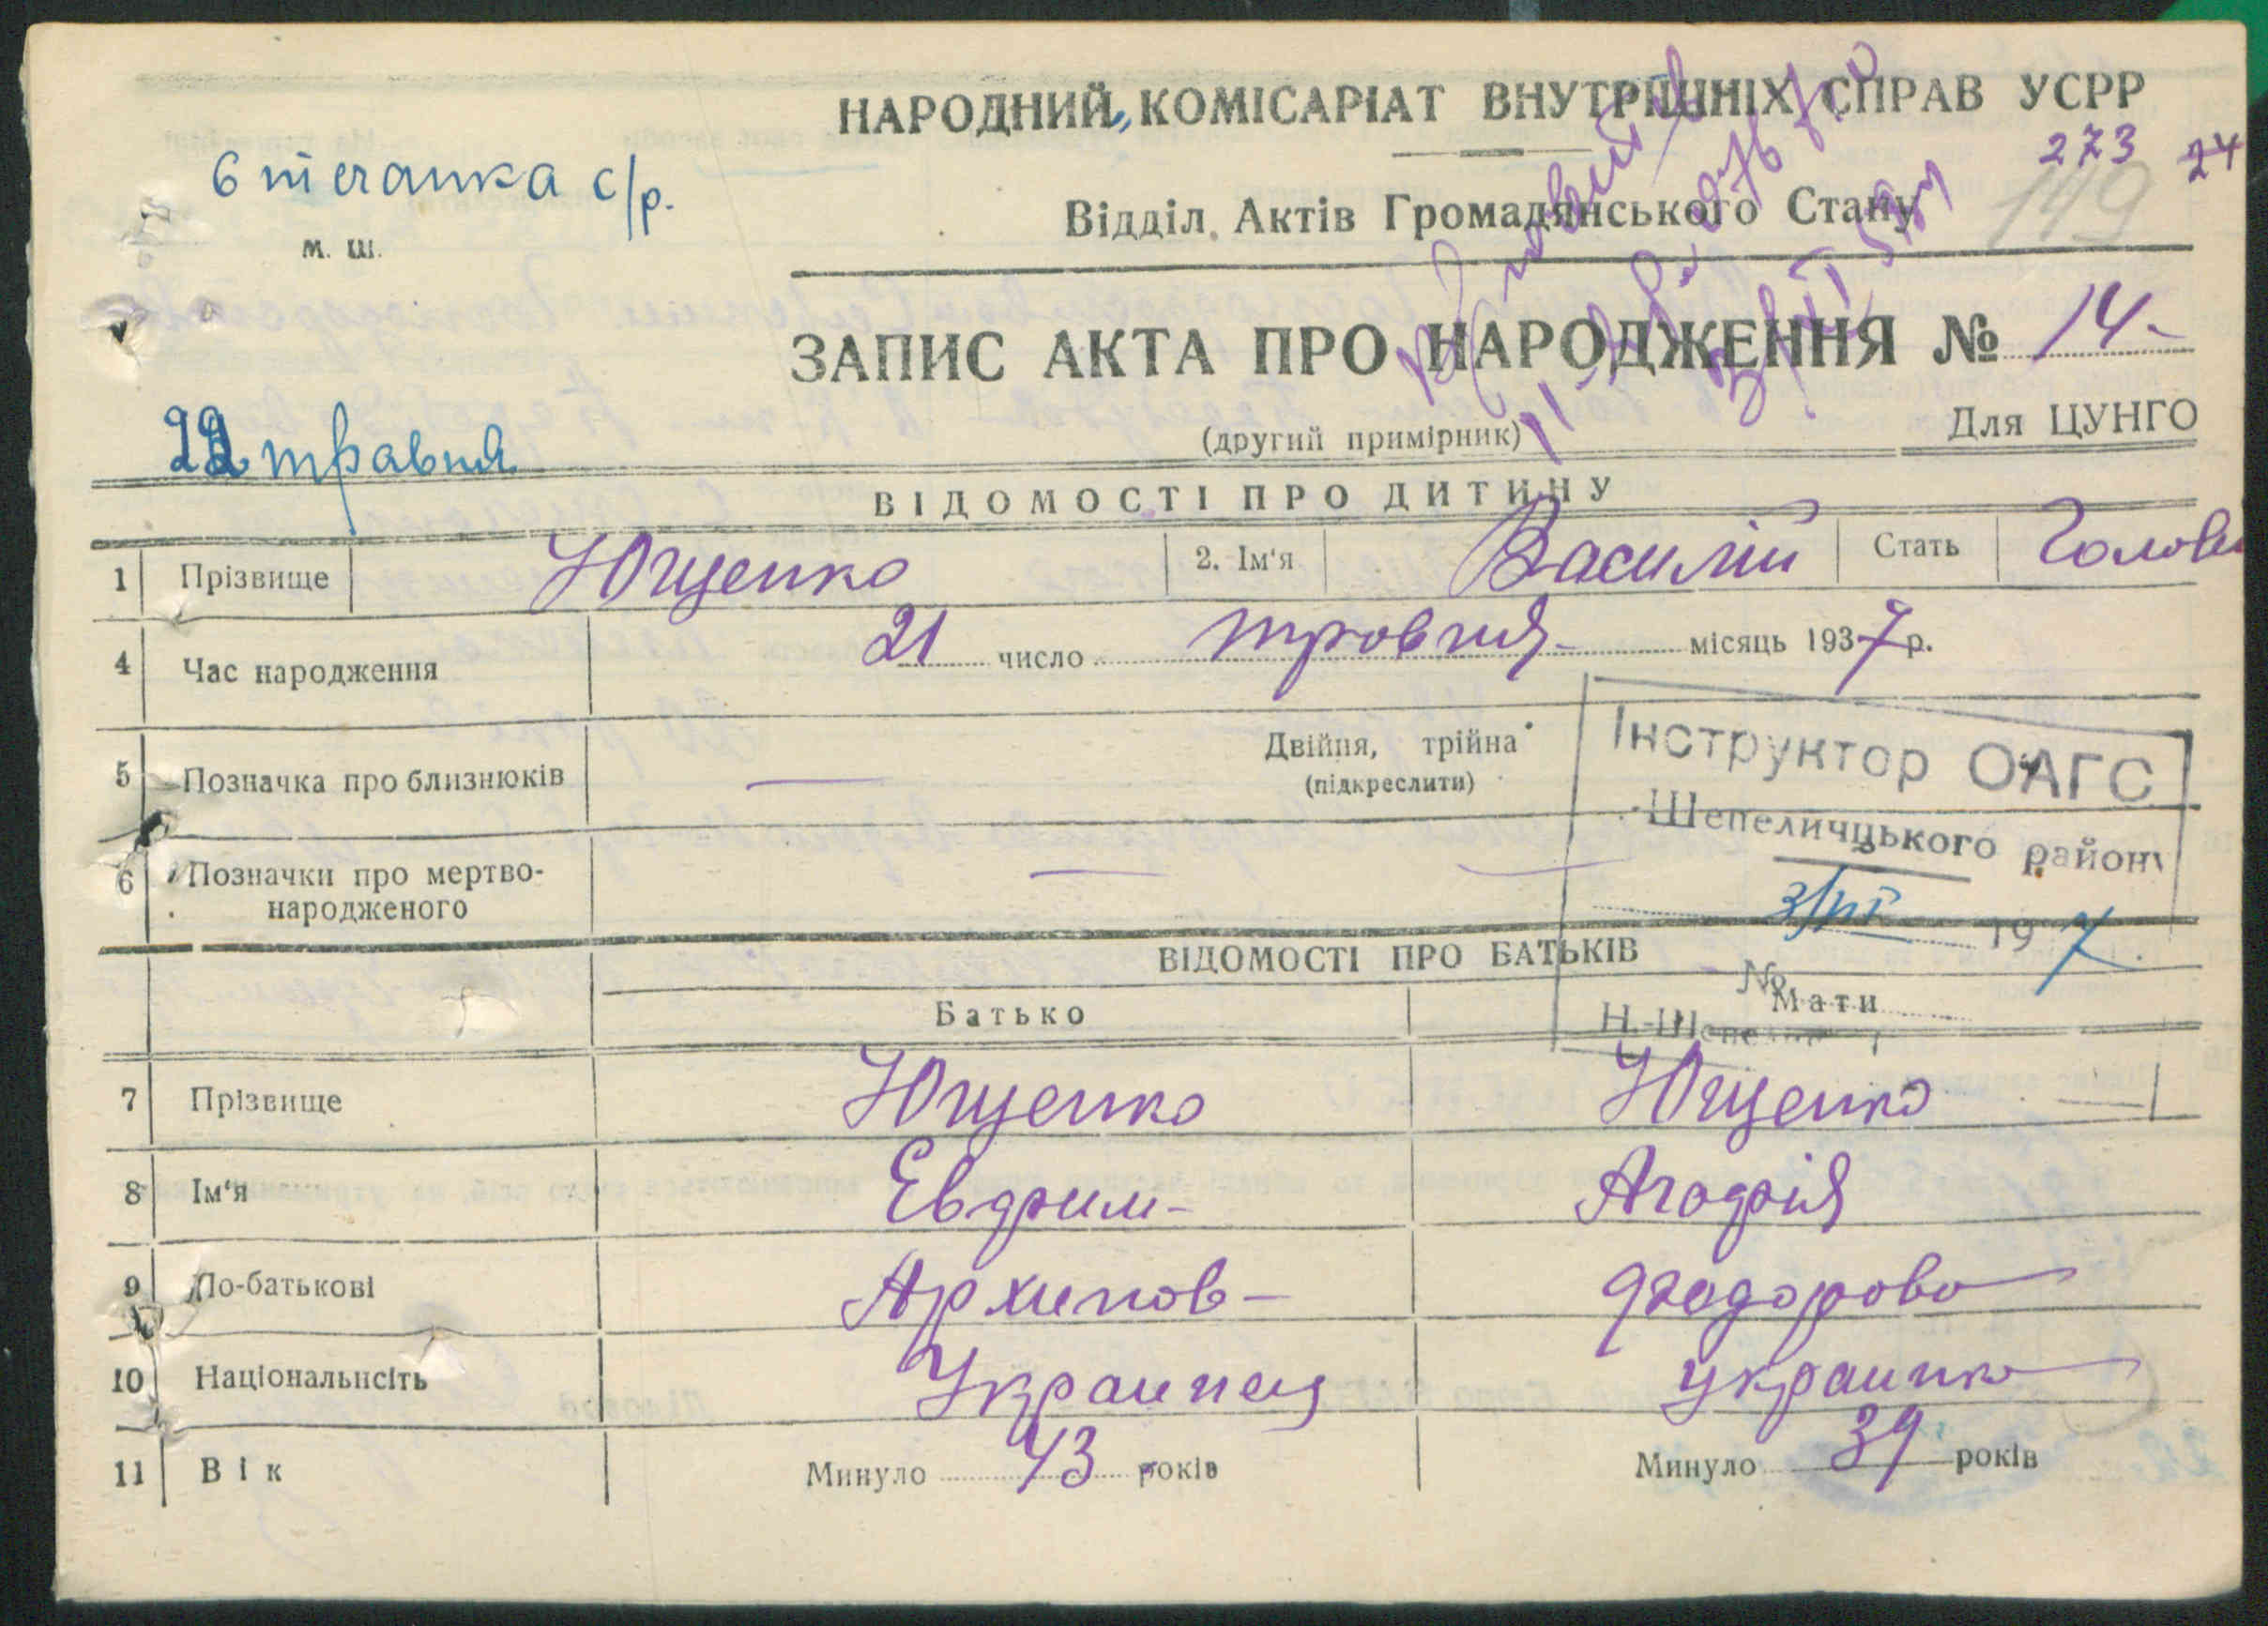 НАРОДНИЙ КОМІСАРІАТ ВНУТРІШНІХ СПРАВ УСРР
273 24
Стечанка с/р.
149
Відділ Актів Громадянського Стану
м. ш.
ЗАПИС АКТА ПРО НАРОДЖЕННЯ № 14-
22 травня
(другий примірник)
Для ЦУНГО
ВІДОМОСТІ ПРО ДИТИНУ
1 Прізвище Ющенко 2. Ім'я Василій Стать Чолові
4 Час народження 21 число травня місяць 1937 р.
5 Позначка про близнюків — Двійня, трійна
(підкреслити)
Інструктор ОАГС
Шепеличцького району
3/VI 1937
№
Н.-Шепе
6 Позначки про мертво-
народженого — —
ВІДОМОСТІ ПРО БАТЬКІВ
Батько Мати
7 Прізвище Ющенко Ющенко
8 Ім'я Евфим- Агафія
9 По-батькові Архипов- Феодорова
10 Національнсіть Украинец Украинка
11 Вік Минуло 43 років Минуло 39 років